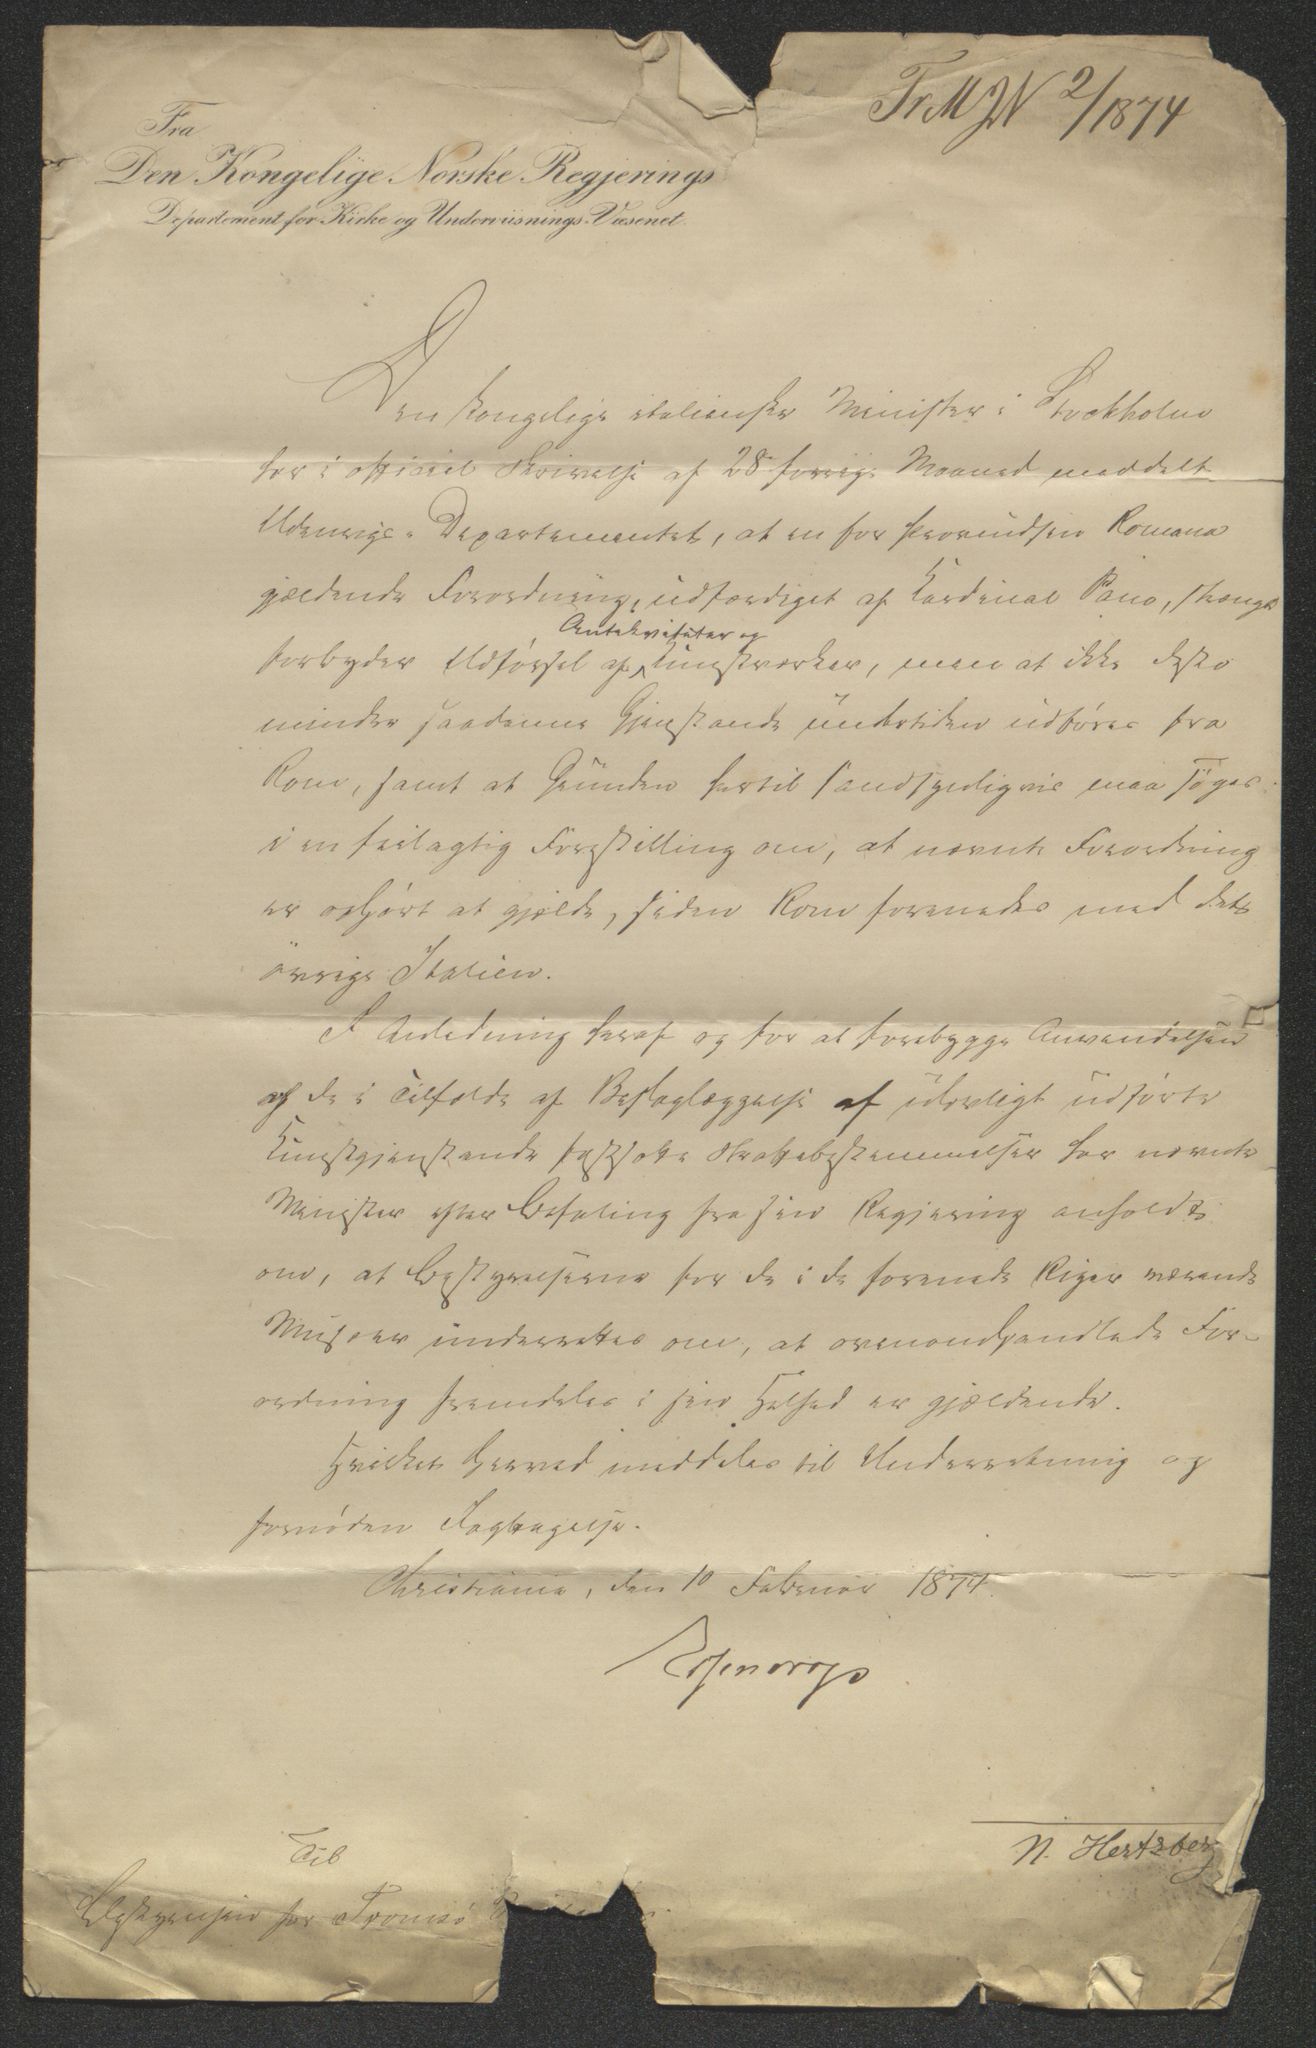 TrMJN 2/1874
Fra
Den Kongelige Norske Regjerings
Departement for Kirke og Underviisnings-Væsenet.
Den kongelige italienske Minister i Stockholm
har i officiel Skrivelse af 28 forrige Maaned meddelt
Udenrigs-Departementet, at en for Provindsen Romana
gjældende Forordning, udfærdiget af Kardinal Pano, strengt
Antikviteter og
forbyder Udførsel af Kunstværker, men at ikke desto
mindre saadanne Gjenstande undertiden udføres fra
Rom, samt at Grunden hertil sandsynligvis maa søges
i en feilagtig Forestilling om, at nævnte Forordning
er ophørt at gjælde, siden Rom forenedes med det
øvrige Italien.
I Anledning heraf og for at forebygge Anvendelsen
af de i Tilfælde af Beslaglæggelse af ulovligt udførte
Kunstgjenstande fastsatte Straffebestemmelser har nævnte
Minister efter Befaling fra sin Regjering anholdt
om, at Bestyrelserne for de i de forenede Riger værende
Museer underrettes om, at ovenomhandlede For-
ordning fremdeles i sin Helhed er gjældende.
Hvilket herved meddeles til Underretning og
fornøden Iagttagelse.
Christiania, den 10 Februar 1874.
N. Hertzberg
Til
Bestyrelsen for Tromsø